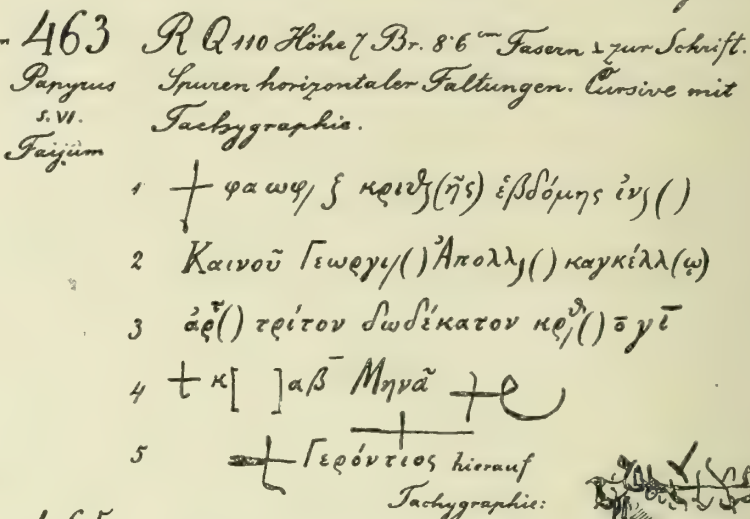 463 R Q 110 Höhe 7 Br. 8·6 cm Fasern ⊥ zur Schrift.
Papyrus Spuren horizontaler Faltungen. Cursive mit
s. VI. Tachygraphie.
Faijûm
1 + φαωφ/ ξ κριθ(ῆς) ἑβδόμης ἰνδ( )
2 Καινοῦ Γεωργι/( ) Ἀπολλ( ) καγκέλλ(ῳ)
3 ἀρτ( ) τρίτον δωδέκατον κρθ/( ) ō γ ιβ
4 + κ[ ]αβ Μηνᾶ +
5 + Γερόντιος hierauf
Tachygraphie: